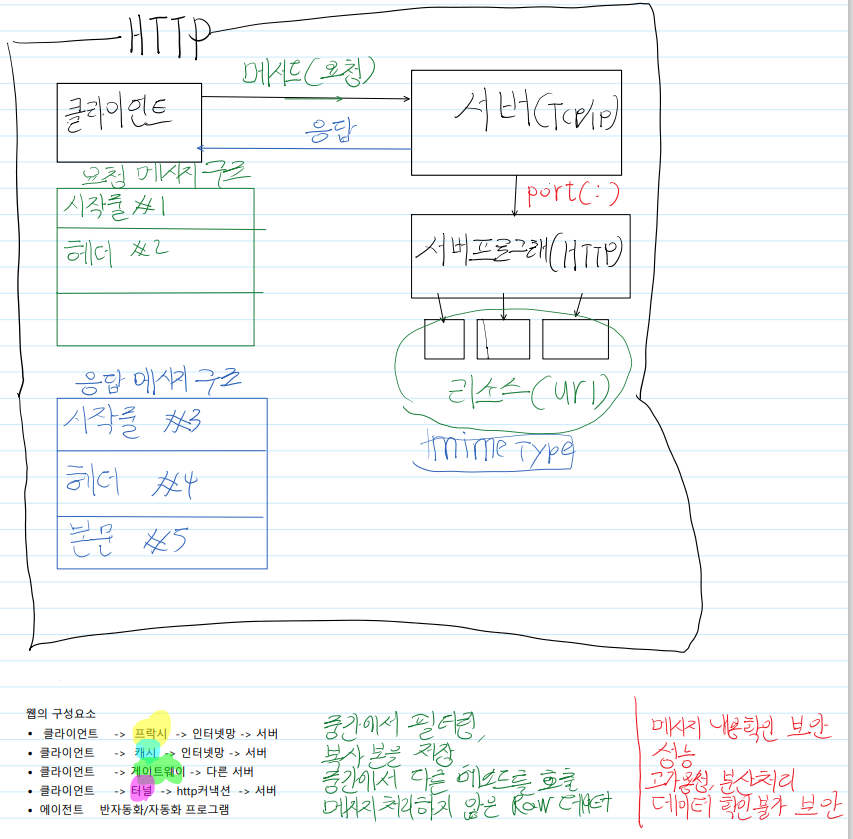 HTTP
메서드(요청)
클라이언트
서버(TCP/IP)
응답
요청 메시지 구조
port(:)
시작줄 #1
헤더 #2
서버프로그램(HTTP)
응답 메시지 구조
리소스(uri)
시작줄 #3
+mime Type
헤더 #4
본문 #5
웹의 구성요소
• 클라이언트 -> 프락시 -> 인터넷망 -> 서버
• 클라이언트 -> 캐시 -> 인터넷망 -> 서버
• 클라이언트 -> 게이트웨이 -> 다른 서버
• 클라이언트 -> 터널 -> http커낵션 -> 서버
• 에이전트 반자동화/자동화 프로그램
중간에서 필터링,
복사 본을 저장,
중간에서 다른 메소드를 호출
메시지처리하지 않은 Row 데이터
메시지 내용확인 보안
성능
고가용성, 분산처리
데이터 확인불가 보안